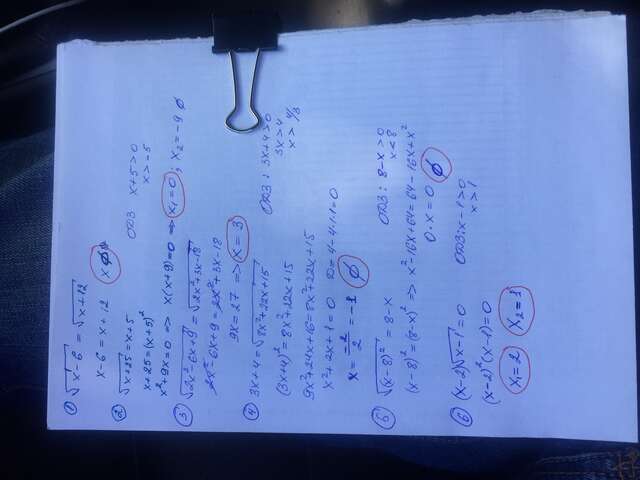 1 √x-6 = √x+12
x-6 = x+12 x ∅
2 √x+25 = x+5 ОДЗ x+5>0
x+25=(x+5)² x>-5
x²+9x=0 => x(x+9)=0 => x₁=0; x₂=-9 ∅
3 √2x²-6x+9 = √2x²+3x-18
2x²-6x+9 = 2x²+3x-18
9x=27 => x=3
4 3x+4=√8x²+22x+15 ОДЗ: 3x+4>0
(3x+4)²=8x²+22x+15 3x>4
9x²+24x+16=8x²+22x+15 x>4/3
x²+2x+1=0 D=4-4·1·1=0
x=-2/2=-1 ∅
5 √(x-8)² = 8-x ОДЗ: 8-x>0
(x-8)²=(8-x)² => x²-16x+64=64-16x+x² x<8
0·x=0 ∅
6 (x-2)√x-1=0 ОДЗ: x-1>0
(x-2)²(x-1)=0 x>1
x₁=2 x₂=1